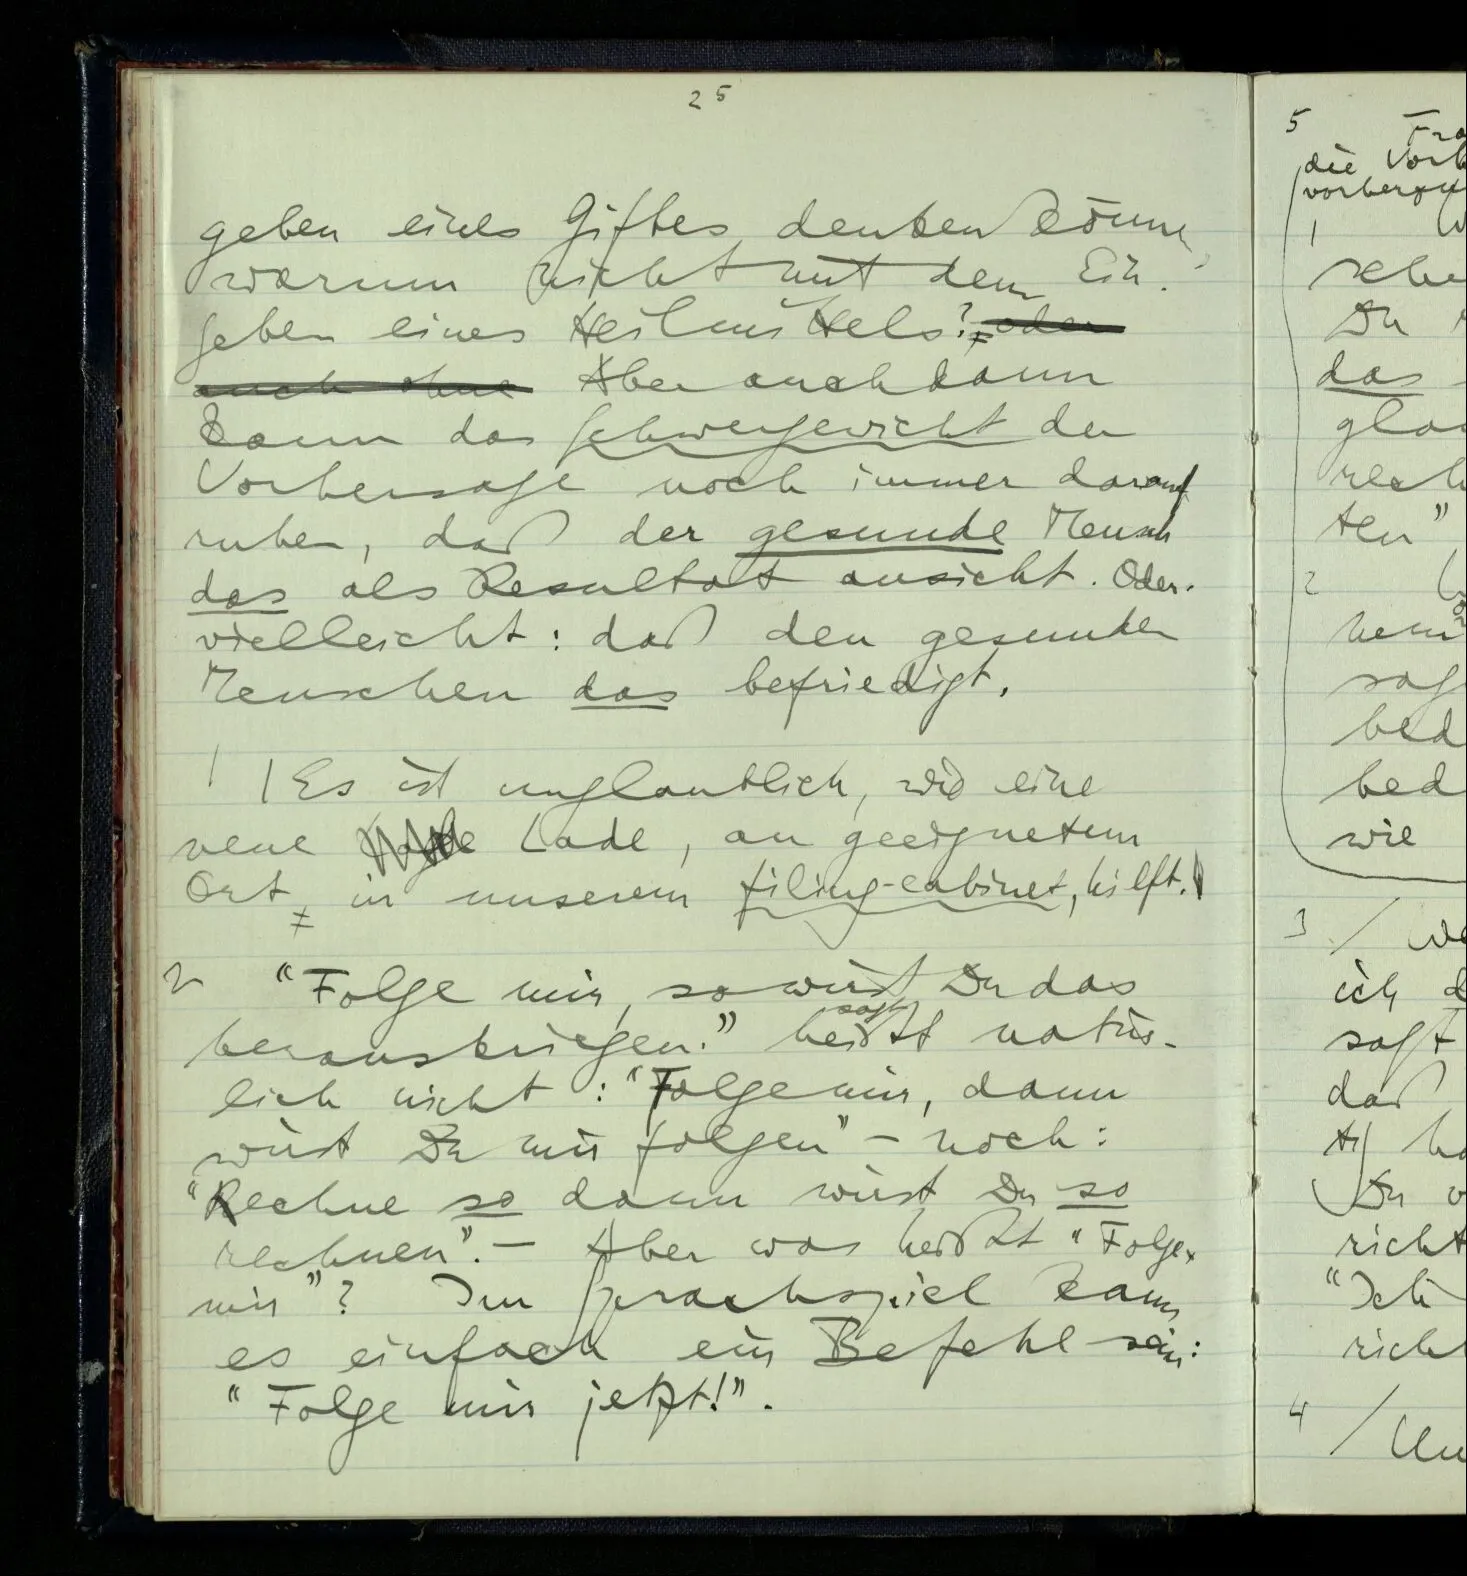 25
geben eines Giftes denken könne,
warum nicht mit dem Ein-
geben eines Heilmittels? oder
auch ohne Aber auch dann
kann das Schwergewicht der
Vorhersage noch immer darauf
ruhen, daß der gesunde Mensch
das als Resultat ansieht. Oder
vielleicht: daß den gesunden
Menschen das befriedigt.
1 | Es ist unglaublich, wie eine
neue Lade, an geeignetem
Ort in unserem filing-cabinet, hilft. |
2 "Folge mir, so wirst Du das
herauskriegen." heißt sagt natür-
lich nicht: "Folge mir, dann
wirst Du mir folgen" – noch:
"Rechne so dann wirst Du so
rechnen". – Aber was heißt "Folge
mir"? Im Sprachspiel kann
es einfach ein Befehl sein:
"Folge mir jetzt!".
5
die Vorh
1
sehe
Du
das
rech
ten"
2
sag
bed
bed
wie
3 /
ich d
sagt
daß
Du
richt
"Ich
rich
4 /